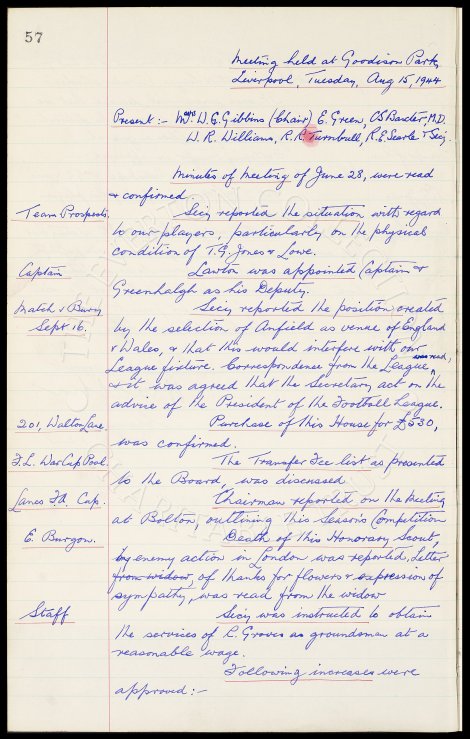 57
Meeting held at Goodison Park,
Liverpool, Tuesday, Aug 15, 1944
Present :- Messrs W.G. Gibbins (Chair) E. Green, C.S. Baxter, M.D.
W.R. Williams, R.R. Turnbull, R.E. Searle & Secy.
Minutes of Meeting of June 28, were read
& confirmed.
Team Prospects. Secy reported the situation with regard
to our players, particularly on the physical
condition of T.G. Jones & Lowe.
Captain Lawton was appointed Captain &
Greenhalgh as his Deputy.
Match v Bury Secy reported the position created
Sept 16. by the selection of Anfield as venue of England
v Wales, & that this would interfere with our
League fixture. Correspondence from the League, was read,
& it was agreed that the Secretary act on the
advice of the President of the Football League.
201, Walton Lane. Purchase of this House for £530,
was confirmed.
F.L. War Cup Pool. The Transfer Fee list as presented
to the Board, was discussed
Lancs F.A. Cup. Chairman reported on the Meeting
at Bolton, outlining this Season's Competition
E. Burgon. Death of this Honorary Scout,
by enemy action in London was reported, Letter
from widow, of thanks for flowers & expression of
sympathy, was read from the widow
Staff Secy was instructed to obtain
the services of C. Groves as groundsman at a
reasonable wage.
Following increases were
approved :-